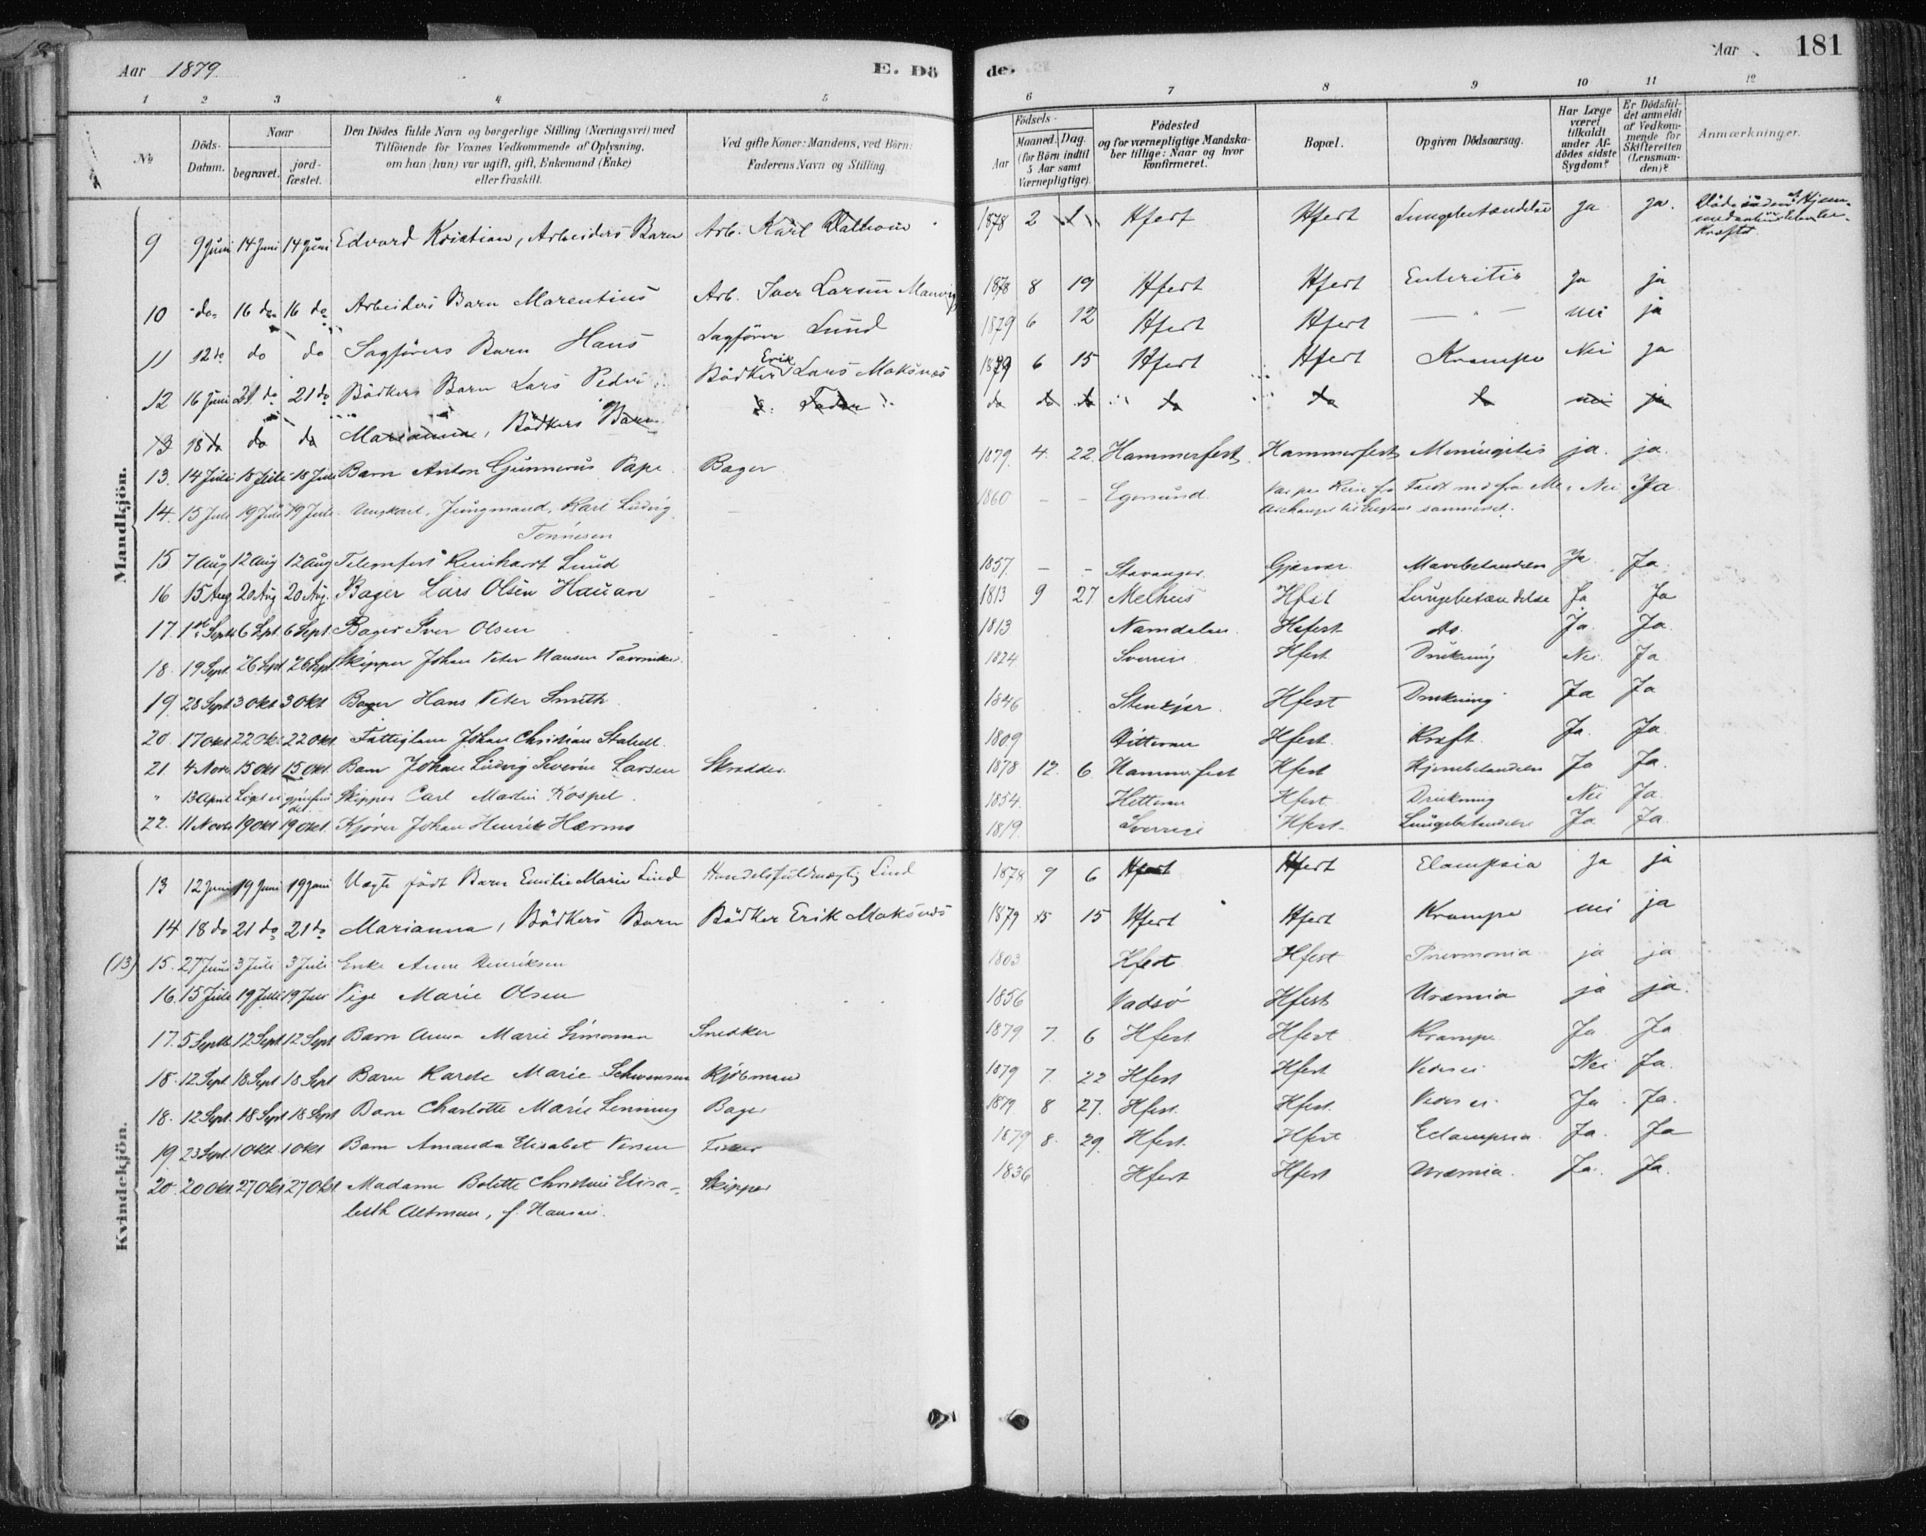 Aar 1879
E. Dö
de.
Aar
181
1 2 3 4 5 6 7 8 9 10 11 12
No
Döds-Datum.
Naar
begravet.
jordfæstet.
Den Dödes fulde Navn og borgerlige Stilling (Næringsvei) med
Tilföiende for Voxnes Vedkommende af Oplysning,
om han (hun) var ugift, gift, Enkemand (Enke)
eller fraskilt.
Ved gifte Koner: Mandens, ved Börn:
Faderens Navn og Stilling
Födsels-
Aar
Maaned. Dag.
(for Börn indtil
5 Aar samt
Værnepligtige).
Födested
og for værnepligtige Mandska-
ber tillige: Naar og hvor
konfirmeret.
Bopæl.
Opgiven Dödsaarsag.
Har Læge
været
tilkaldt
under Af-
dödes sidste
Sygdom?
Er Dödsfal-
det anmeldt
af Vedkom-
mende for
Skifteretten
(Lensman-
den)?
Anmærkninger.
Mandkjön.
9 9 Juni 14 Juni 14 Juni Edvard Kristian, Arbeiders Barn Arb. Karl 1878 2 Hfest Hfest Lungebetændelse ja ja.
10 do 16 do 16 do Arbeiders Barn Marentius Arb. Iver Larsen 1878 8 19 Hfest Hfest Enteritis ja ja
11 12 do do do Sagförers Barn Hans Sagförer Lund 1879 6 12 Hfest Hfest — " — nei ja
12 16 Juni 21 do 21 do Bödkers Barn Lars Peder Bödker Erik Lars Moksnes 1879 6 15 Hfest Hfest Krampe Nei ja
13 18 do do do Marianna, Bödkers Barn do do do do do do nei ja
13. 14 Juli 18 Juli 18 Juli Barn Anton Gunnerus Pape Bager 1879. 4. 22. Hammerfest Hammerfest Meningitis ja. ja.
14. 15 Juli 19 Juli 19 Juli Ungkarl, Jungmand, Karl Ludvig 1860 – – Egersund. Nei Ja
Tönnesen
15 7 Aug 12 Aug 12 Aug Reinhart Lund 1857 – – Stavanger Gjæsvær Mavebetændelse Ja Ja.
16 15 Aug 20 Aug 20 Aug. Bager Lars Olsen Hauan 1813 9 27 Melhus Hfest Lungebetændelse Ja Ja
17. 1 Sept 6 Sept. 6 Sept. Bager Iver Olsen 1813 Namdalen. Hfest do Ja. Ja.
18. 19 Sept. 26 Sept 26 Sept. Skipper Johan Peter Hansen 1824 Sverrige Hfest Drukning Nei Ja.
19. 28 Sept 3 Okt 3 Okt Bager Hans Peter Smith 1846 Stenkjær. Hfest Drukning Ja Ja
20. 17 Okt 22 Okt 22 Okt. Fattiglem Johan Christian 1809 Hitteren Hfest. Kræft. Ja. Ja.
21 4 Nov. 15 Okt 15 Okt. Barn Johan Ludvig Severin Larsen Skrædder 1878 12. 6 Hammerfest Hfest Hjernebetændelse Ja Ja.
" 13 April Liget ei gjenfun Skipper Carl Martin Kospel. 1854. Hitteren Hfest Drukning Nei Ja.
22. 11 Novbr 19 Okt 19 Okt. Johan Henrik Hærms 1819. Sverrige Hfest. Lungebetændelse Ja Ja.
Kvindekjön.
13 12 Juni 19 Juni 19 Juni Uægte födt Barn Emilie Marie Lind Handelsfuldmægtig Lind 1878 9 6 Hfest Hfest Elampsia ja ja
14 18 do 21 do 21 do Marianna, Bödkers Barn Bödker Erik Moksnes 1879 15 Hfest Hfest Krampe nei ja
(13) 15. 27 Juni 3 Juli 3 Juli Enke Anne Henriksen 1803 Hfest Hfest Pnevmonia ja ja
16. 15 Juli 19 Juli 19 Juli Pige Marie Olsen 1856 Vadsö Hfest Uræmia ja ja.
17. 5 Septb 12 Sept 12 Sept Barn Anna Marie Simonsen Snedker 1879 7. 6 Hfest Hfest Krampe Ja Ja
18. 12 Sept 18 Sept 18 Sept Barn Marie Schwensen Kjöbmand 1879 7. 22 Hfest Hfest Nei Ja.
18. 12 Sept. 18 Sept 18 Sept Barn Charlotte Marie Lenning Bager 1879 8 27. Hfest. Hfest. Ja. Ja.
19. 23 Sept. 1 Okt. 1 Okt Barn Amanda Elisabet Fisker 1879 8. 29. Hfest. Hfest Eclampsia. Ja. Ja
20. 20 Okt 27 Okt 27 Okt Madame Bolette Christine Elisa- Skipper 1836 Hfest Hfest Uræmia. Ja. Ja.
beth Altman, f. Hansen.